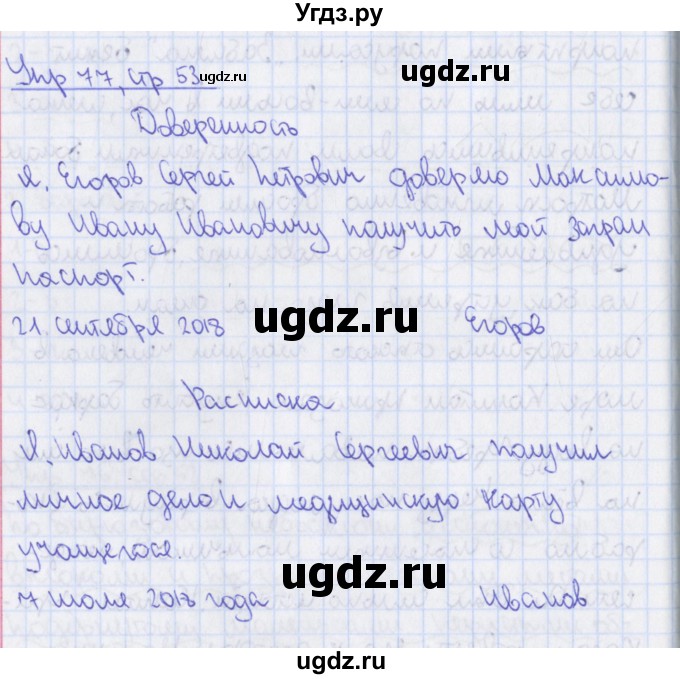 Угдз.ру
ugdz.ru
Упр 77, стр 53 ugdz.ru
Доверенность
ugdz.ru
Я, Егоров Сергей Петрович доверяю Максимо-
ву Ивану Ивановичу получить мой загран
паспорт.
21. сентября 2018 ugdz.ru Егоров
Расписка
Я, Иванов Николай Сергеевич получил
ugdz.ru
личное дело и медицинскую карту
учащегося.
ugdz.ru
7 июля 2018 года Иванов
ugdz.ru